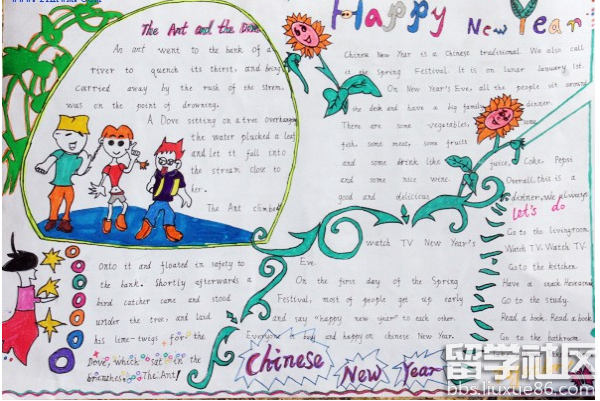 The Ant and the Dove
An ant went to the bank of a
river to quench its thirst, and being
carried away by the rush of the strem,
was on the point of drowning.
A Dove sitting on a tree overhanging
the water plucked a leaf
and let it fall into
the stream close to
her.
The Ant climbed
Onto it and floated in safety to
the bank. Shortly afterwards a
bird catcher came and stood
under the tree, and laid
his lime-twigs for the
Dove, which sat in the
branches. The Ant,
Happy New Year
Chinese New Year is a Chinese traditional. We also call
it the Spring Festival. It is on lunar January 1st.
On New Year's Eve, all the people sit around
the desk and have a big family dinner.
There are some vegetables, some
fish, some meat, some fruits
and some drink like juice, Coke, Pepsi
and some nice wine. Overall, this is a
good and delicious dinner. We always
watch TV New Year's
Eve.
On the first day of the Spring
Festival, most of people get up early
and say "happy new year" to each other.
Everyone is busy and happy on chinese New Year.
Let's do
Go to the livingroom.
Watch TV. Watch TV.
Go to the kitchen.
Have a snack.
Go to the study.
Read a book. Read a book.
Go to the bathroom
Chinese New Year
留学社区
bbs.liuxue86.com